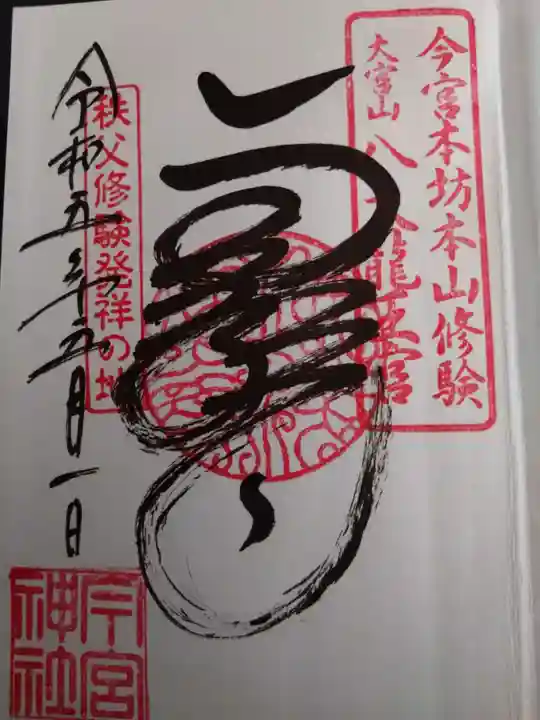 今宮本坊本山修験
大宮山
八大龍王宮
龍
秩父修験発祥の地
令和五年五月一日
今宮
神社